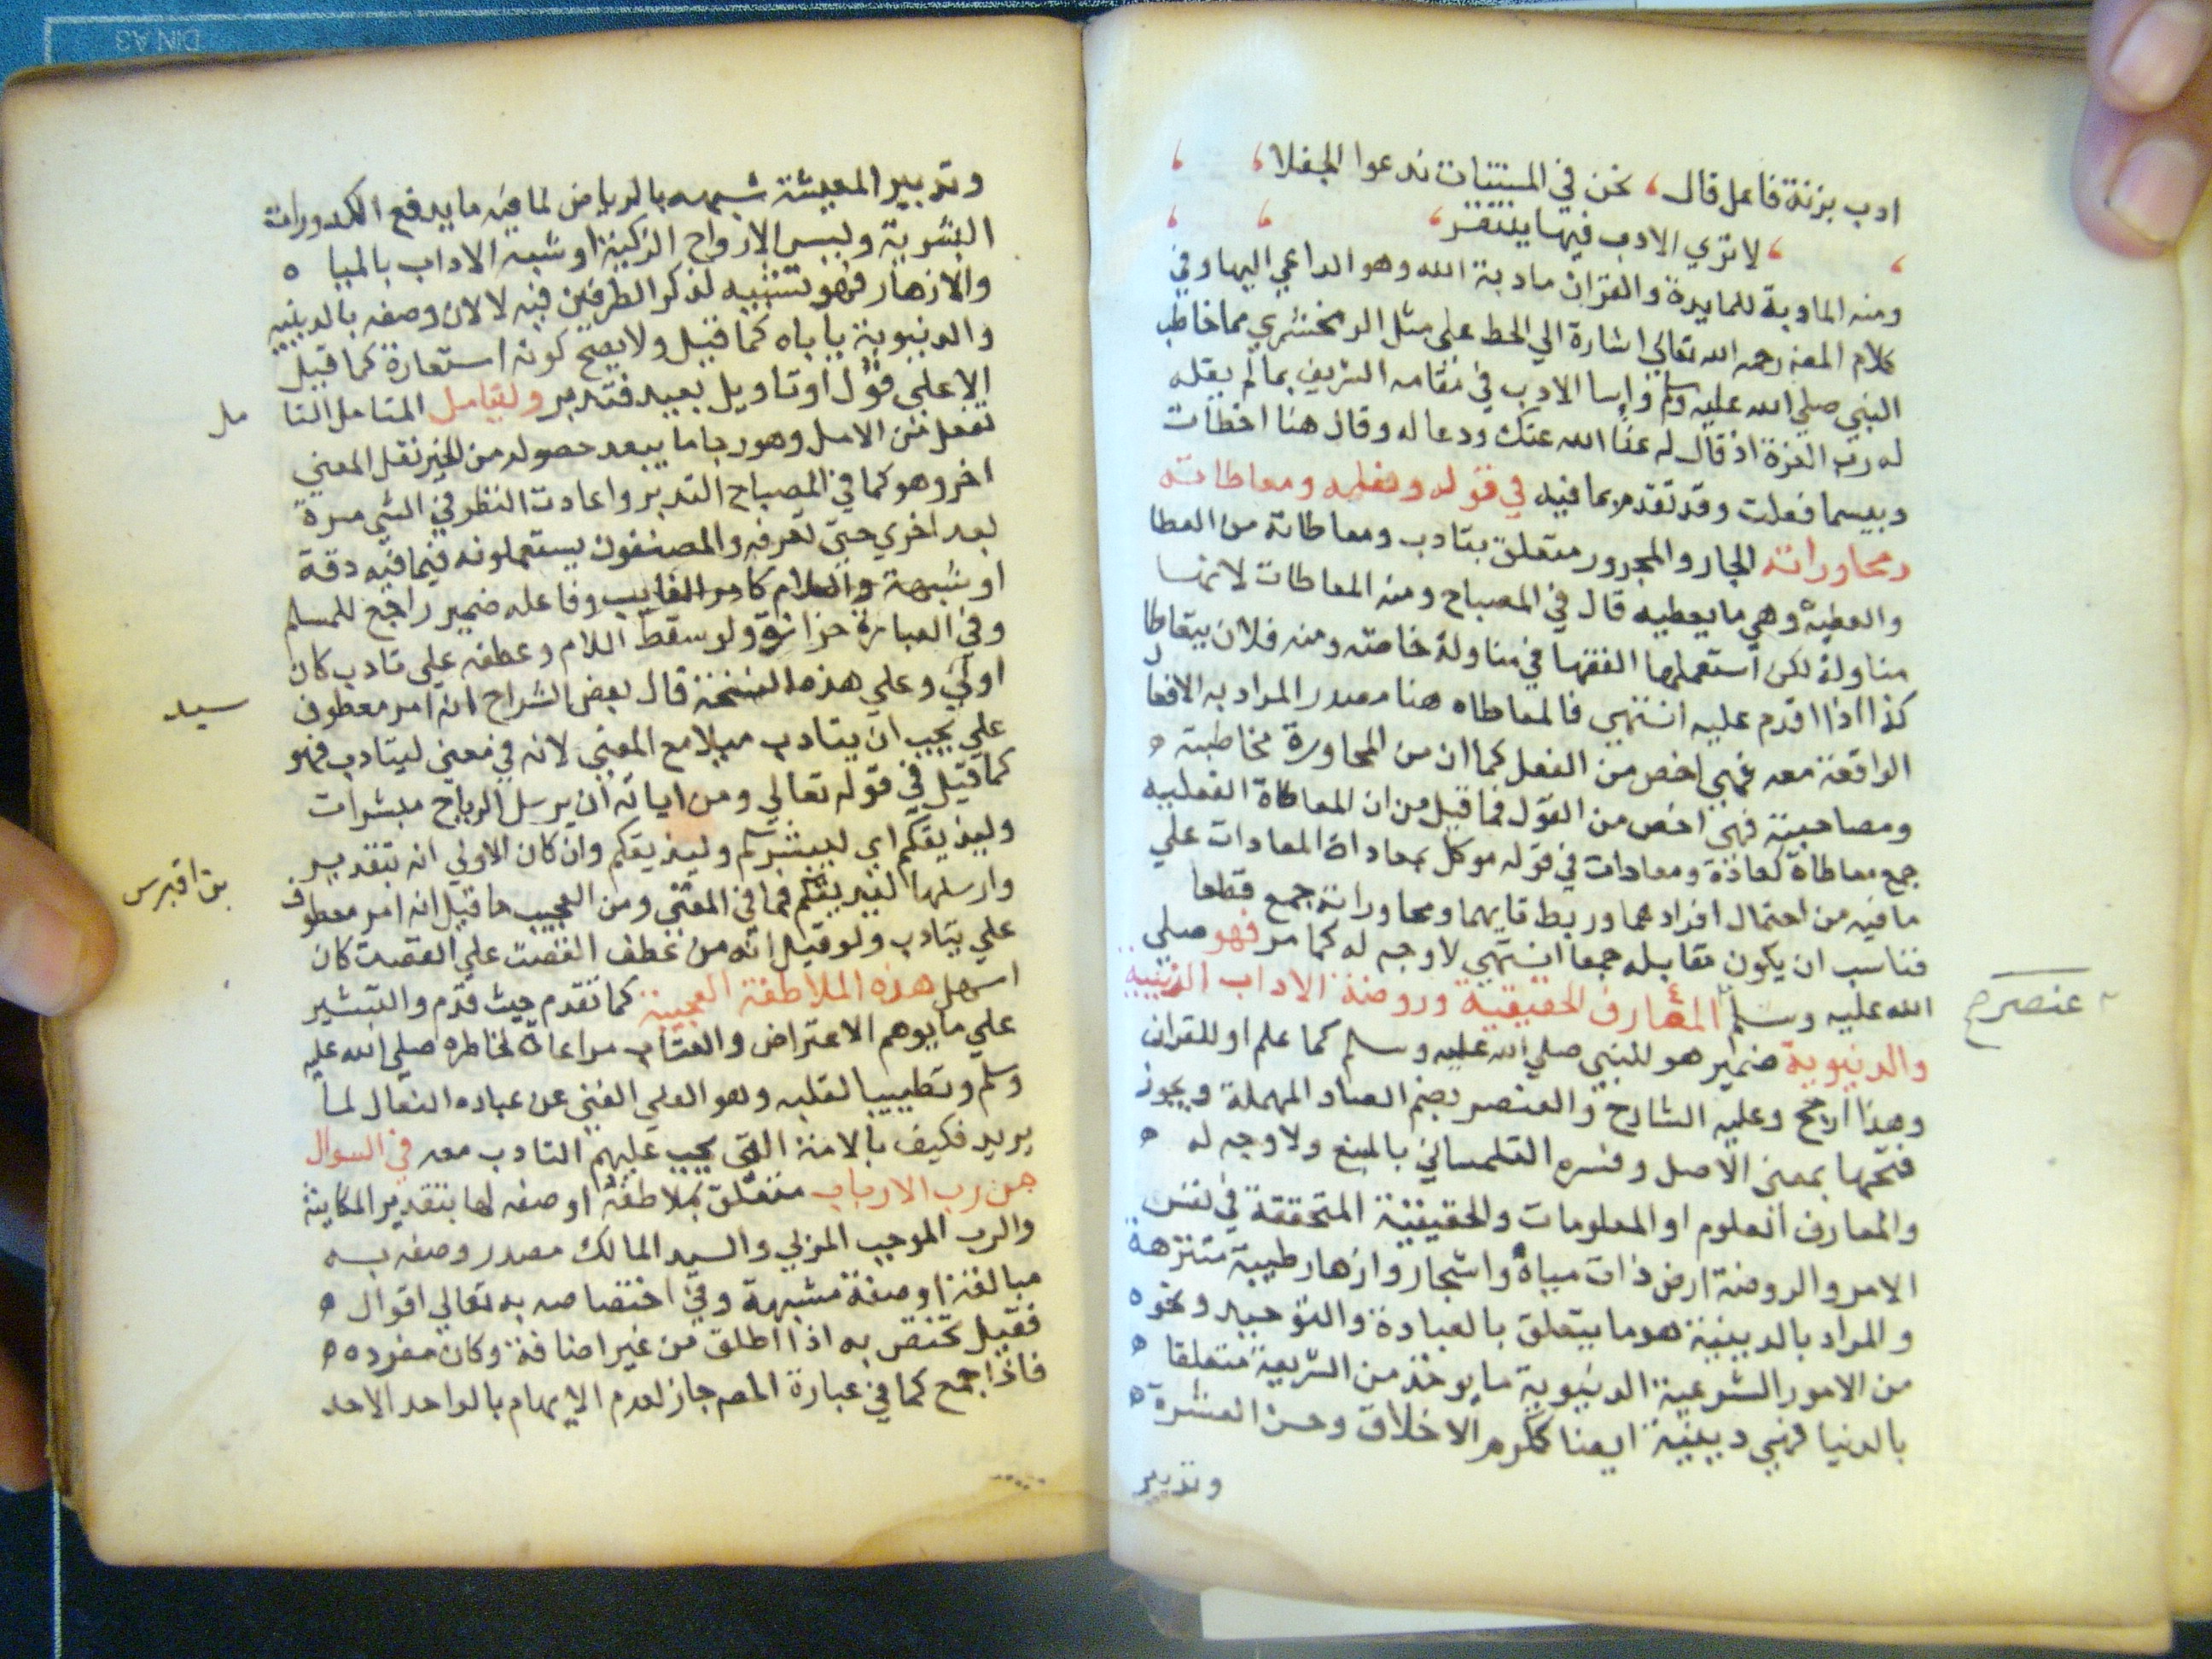 ادب بزنة فاعل قال، نحن في المشتات ندعوا الجفلا،
، لا تري الادب فيها ينتقر،
ومنه المادبة للمايدة والقران مادبة الله وهو الداعي اليها وفي
كلام المص رحمه الله تعالي اشارة الي الحط علي مثل الزمخشري مما خاطب
النبي صلي الله عليه وسلم واسا الادب في مقامه الشريف بما لم يقله
له رب العزة اذ قال له عفا الله عنك ودعا له وقال هنا اخطأت
وبيسما فعلت وقد تقدم بما فيه في قوله وفعله ومعاطاته
ومحاوراته الجار والمجرور متعلق بتادب ومعاطاته من العطا
والعطية وهي ما يعطيه قال في المصباح ومنه المعاطات لانها
مناولة لكن استعملها الفقها في مناولة خاصة ومنه فلان يتعاطا
كذا اذا اقدم عليه انتهي فالمعاطاه هنا مصدر المراد به الافعال
الواقعة معه فهي اخص من الفعل كما ان من المحاورة مخاطبته
ومصاحبته فهي اخص من القول فما قيل من ان المعاطاة الفعلية
جمع معاطاة كعاذة ومعادات في قوله موكل بمعاداة المعادات علي
ما فيه من احتمال افرادهما وربط قايهما ومحاوراته جمع قطعا
فناسب ان يكون مقابله جمعا انتهي لا وجه له كما مر فهو صلي
الله عليه وسلم المعارف الحقيقية وروضة الاداب الدينية
عنصر
والدنيوية ضمير هو للنبي صلي الله عليه وسلم كما علم او للقران
وهذا ارجح وعليه الشارح والعنصر بضم الصاد المهملة ويجوز
فتحها بمعني الاصل وفسره التلمساني بالمنبع ولا وجه له
والمعارف العلوم او المعلومات والحقيقية المتحققة في نفس
الامر والروضة ارض ذات مياه واشجار وازهار طيبة متنزهة
والمراد بالدينية هو ما يتعلق بالعبادة والتوحيد ونحوه
من الامور الشرعية الدنيوية ما يوخذ من الشريعة متعلقا
بالدنيا فهي دينية ايضا ككرم الاخلاق وحسن العشرة
وتدبير
وتدبير المعيشة شبهه بالرياض لما فيه ما يدفع الكدورات
البشرية ويسر الارواح الزكية او شبه الاداب بالمياه
والازهار فهو تشبيه لذكر الطرفين فيه لا لان وصفه بالدينيه
والدنيوية ياباه كما قيل ولا يصح كونه استعارة كما قيل
الا علي قول او تاويل بعيد فتدبر وليتامل المتامل التا
مل
تفعل من الامل وهو رجا ما يبعد حصوله من الخير نقل المعني
اخر وهو كما في المصباح التدبر واعادت النظر في الشي مرة
بعد اخري حتي تعرفه والمصنفون يستعملونه فيما فيه دقة
او شبهة واللام كامر الغايب وفاعله ضمير راجع للمسلم
وفي العبارة حزازة ولو سقط اللام وعطفه علي تادب كان
اولي وعلي هذه النسخة قال بعض الشراح انه امر معطوف
سيد
علي يجب ان يتادب ميلا مع المعني لانه في معني ليتادب فهو
كما قيل في قوله تعالي ومن اياته ان يرسل الرياح مبشرات
وليذيقكم اي ليبشركم وليذيقكم وان كان الاولي انه بتقدير
وارسلها ليذيقكم كما في المغني ومن العجيب ما قيل انه امر معطوف
بن اقبرس
علي يتادب ولو قيل انه من عطف القصت علي القصت كان
اسهل هذه الملاطفة العجيبة كما تقدم حيث قدم والتبشير
علي ما يوهم الاعتراض والعتاب مراعاة لخاطره صلي الله عليه
وسلم وتطييبا لقلبه وهو العلي الغني عن عباده الفعال لما
يريد فكيف بالامة التي يجب عليهم التادب معه في السوال
من رب الارباب متعلق بملاطفة او صفه لها بتقدير الكاينة
والرب الموجب المربي والسيد المالك مصدر وصف به
مبالغة او صفة مشبهة وفي اختصاصه به تعالي اقوال
فقيل تختص به اذا اطلق من غير اضافة وكان مفرده
فاذا جمع كما في عبارة المص جاز لعدم الايهام بالواحد الاحد